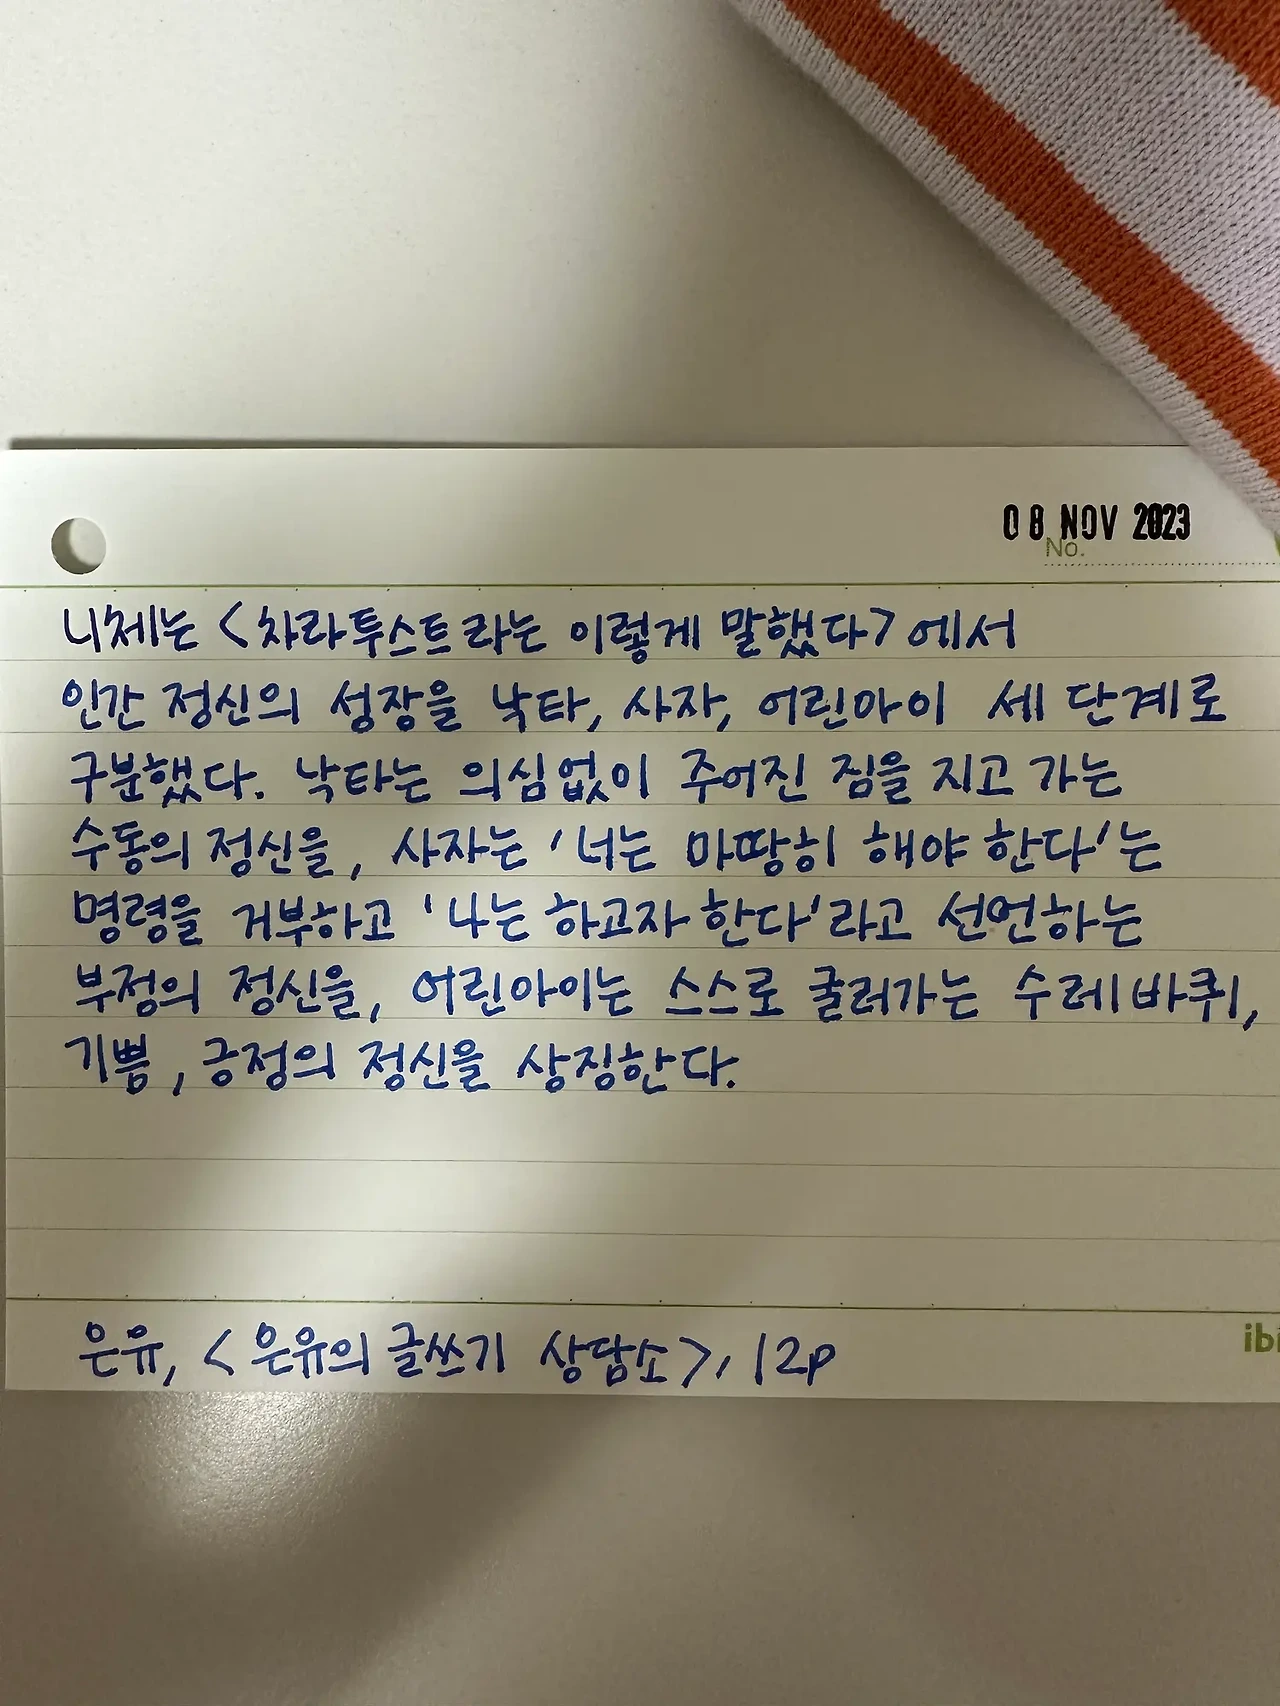 08 NOV 2023
No.
니체는 <차라투스트라는 이렇게 말했다>에서
인간 정신의 성장을 낙타, 사자, 어린아이 세 단계로
구분했다. 낙타는 의심없이 주어진 짐을 지고 가는
수동의 정신을, 사자는 '너는 마땅히 해야 한다'는
명령을 거부하고 '나는 하고자 한다'라고 선언하는
부정의 정신을, 어린아이는 스스로 굴러가는 수레바퀴,
기쁨, 긍정의 정신을 상징한다.
은유, <은유의 글쓰기 상담소>, 12p